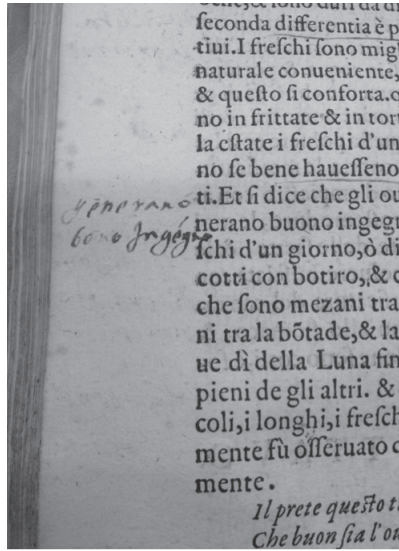 seconda differentia è p
tiui. I freschi sono mig
naturale conueniente,
& questo si conforta. o
no in frittate & in tor
la estate i freschi d'un
no se bene hauesseno
ti. Et si dice che gli ou
generano
nerano buono ingegn
bono Ingégno
schi d'un giorno, ò di
cotti con botiro,, & c
che sono mezani tra
ni tra la bõtade, & la
ue dì della Luna fin
pieni de gli altri. &
coli, i longhi, i fresch
mente fù osseruato c
mente.
Il prete questo t
Che buon sia l'ou